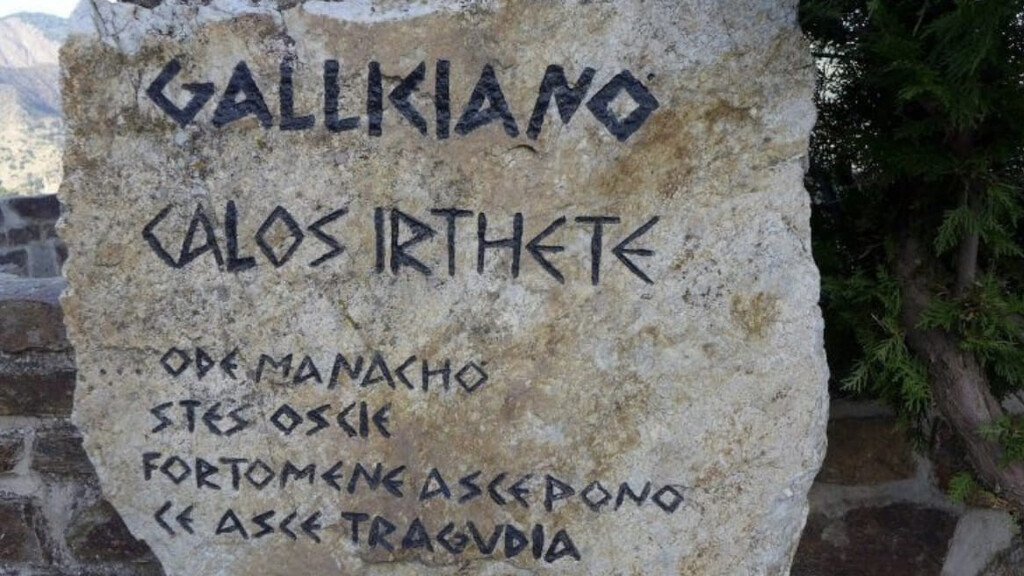 GALLICIANO
CALOS IRTHETE
ODE MANACHO
STES OSCIE
FORTOMENE ASCE PONO
CE ASCE TRAGUDIA